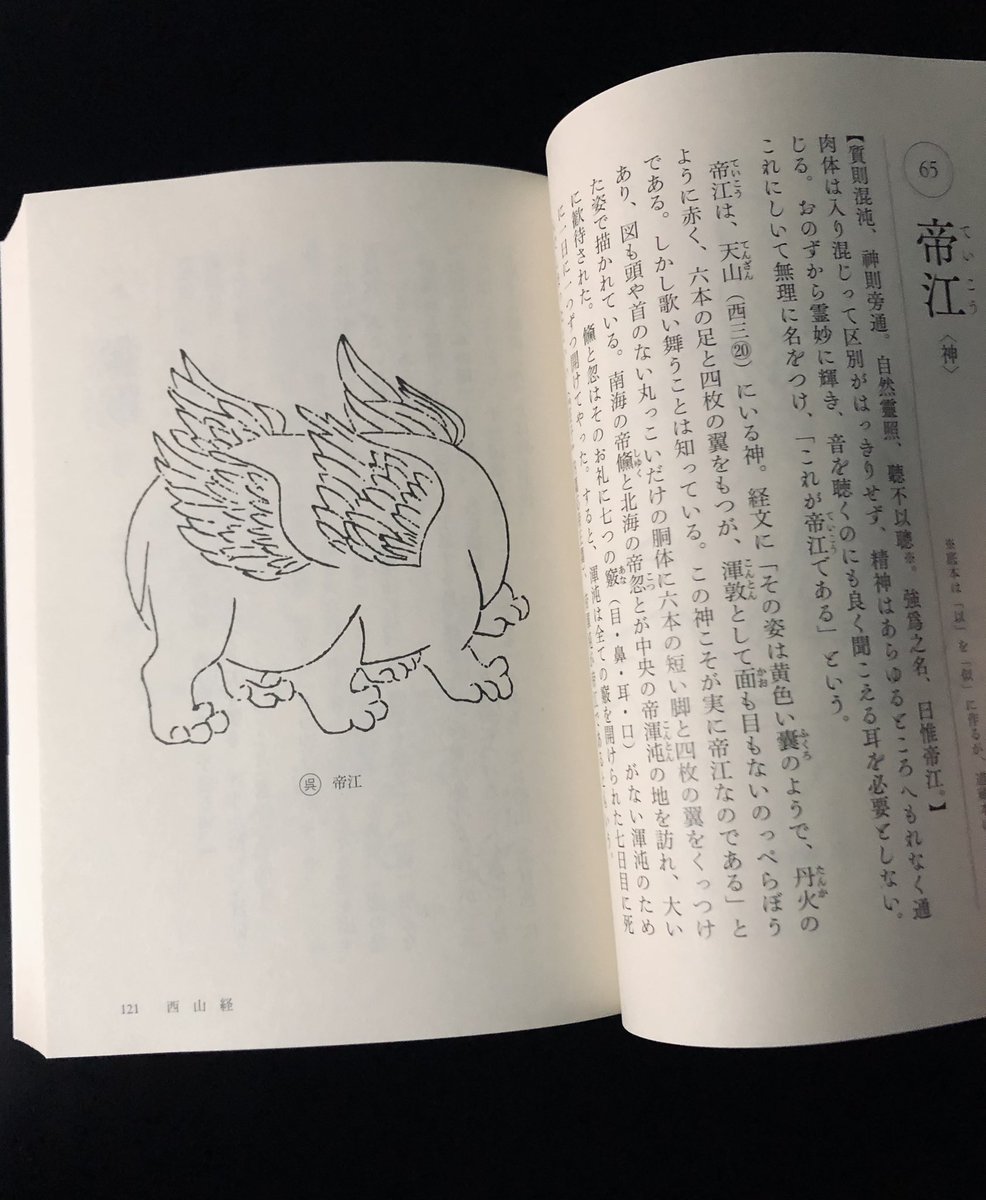 65
帝江〈神〉
ていこう
【質則混沌、神則旁通。自然靈照、聽不以聰※。強爲之名、曰惟帝江。】
※底本は「以」を「似」に作るが、
肉体は入り混じって区別がはっきりせず、精神はあらゆるところへもれなく通
じる。おのずから霊妙に輝き、音を聴くのにも良く聞こえる耳を必要としない。
これにしいて無理に名をつけ、「これが帝江である」という。
帝江は、天山（西三⑳）にいる神。経文に「その姿は黄色い嚢のようで、丹火の
ように赤く、六本の足と四枚の翼をもつが、渾敦として面も目もないのっぺらぼう
である。しかし歌い舞うことは知っている。この神こそが実に帝江なのである」と
あり、図も頭や首のない丸っこいだけの胴体に六本の短い脚と四枚の翼をくっつけ
た姿で描かれている。南海の帝儵と北海の帝忽とが中央の帝渾沌の地を訪れ、大い
に歓待された。儵と忽はそのお礼に七つの竅（目・鼻・耳・口）がない渾沌のため
に一日に一つずつ開けてやった。すると、渾沌は全ての竅を開けられた七日目に死
㊉呉 帝江
121 西山経